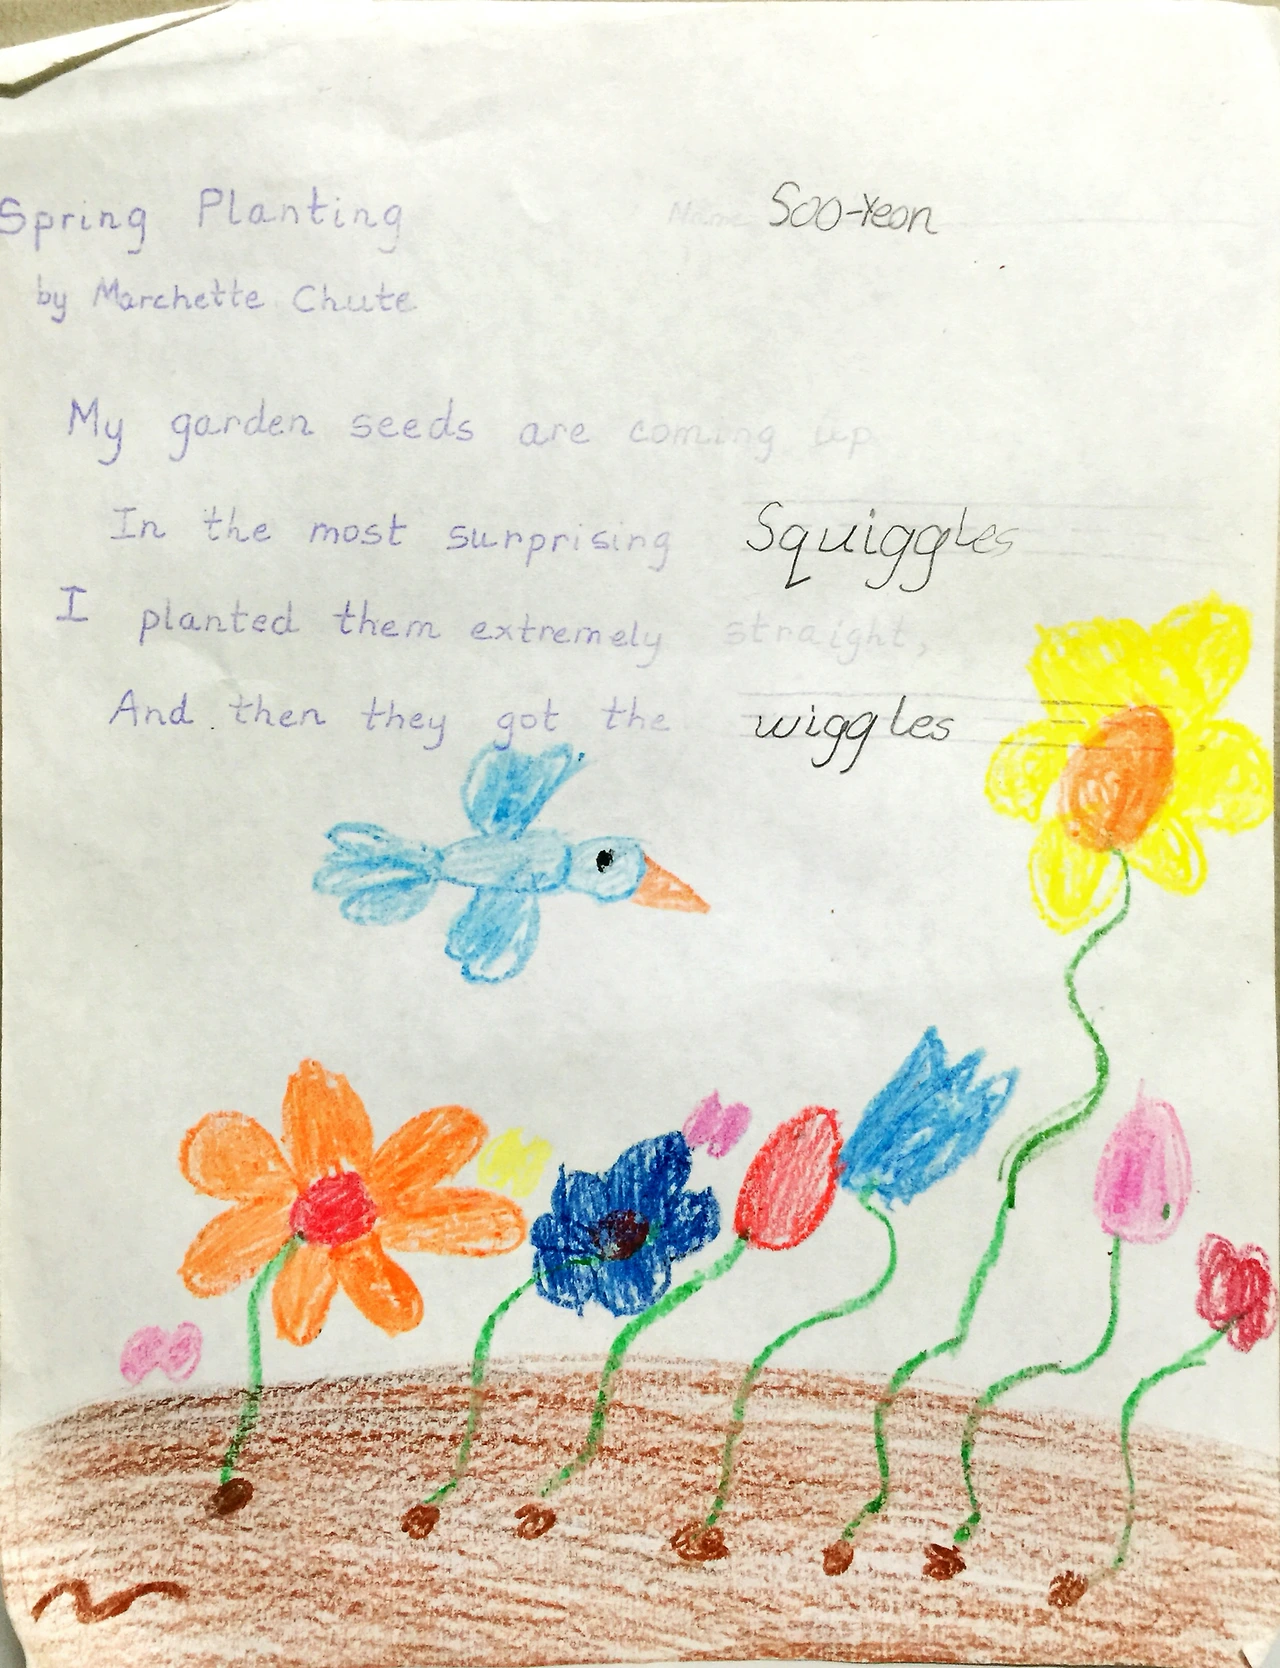 Spring Planting
Name Soo-Yeon
by Marchette Chute
My garden seeds are coming up
In the most surprising Squiggles
I planted them extremely straight,
And then they got the wiggles